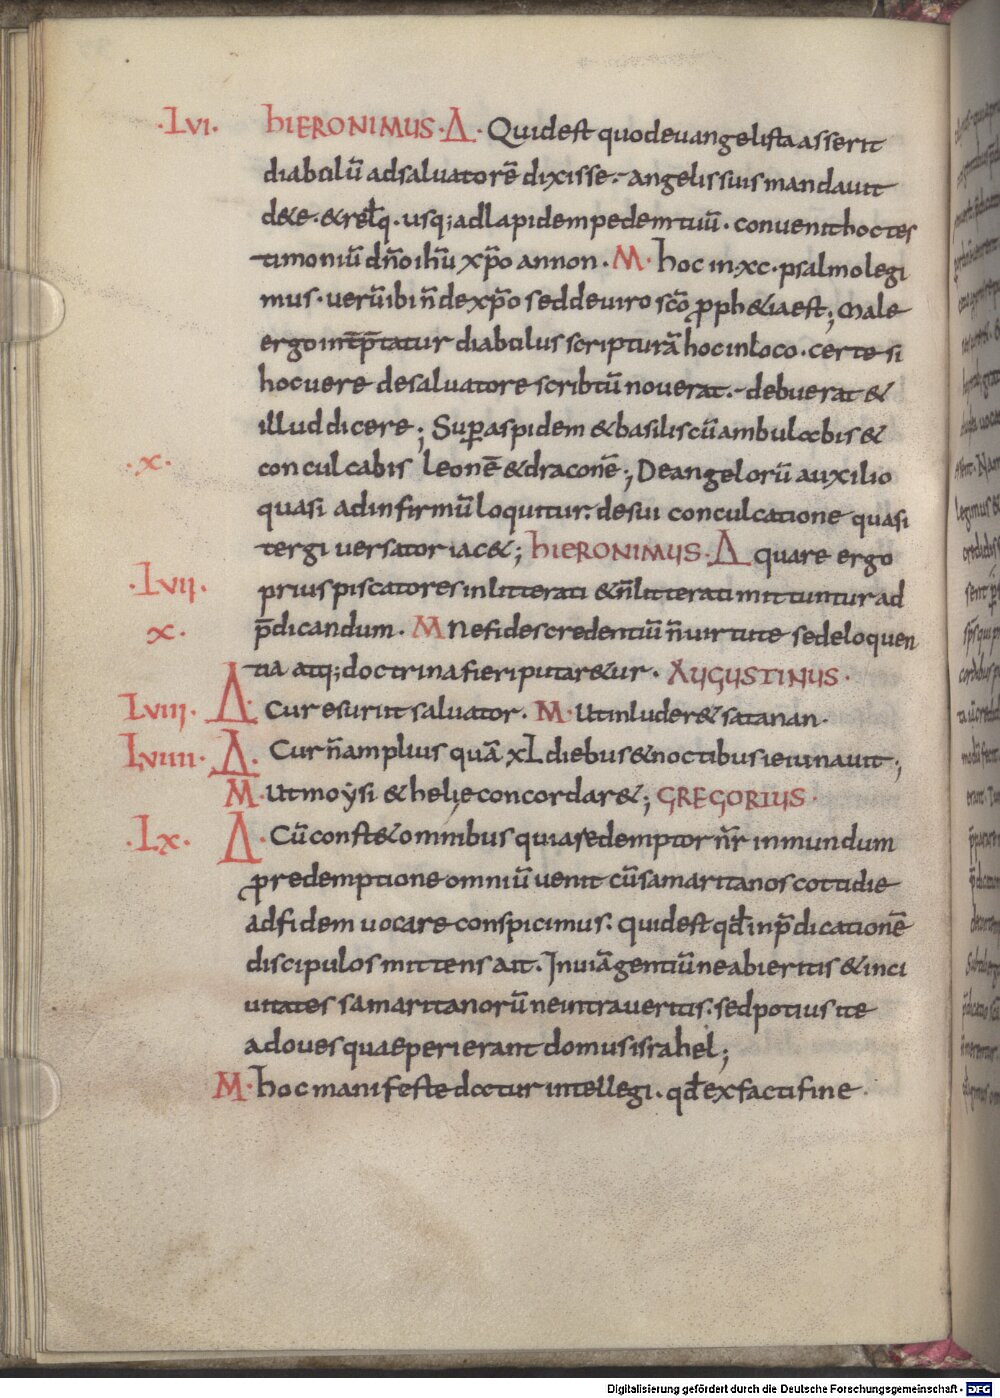 ·LVI· hIERONIMUS·Δ· Quid est quod euangelista asserit
diabolū ad saluatorē dixisse· angelis suis mandauit
de te· & relq̄· usq; ad lapidem pedem tuū· conuenit hoc tes
timoniū dn̄o ihū xp̄o an non· M· hoc in·xc·psalmo legi
mus· uerū ibi n̄ de xp̄o sed de uiro sc̄o ꝓph&ia est; Male
ergo int̄p̄tatur diabolus scripturā hoc in loco· certe si
hoc uere de saluatore scribtū nouerat· debuerat &
illud dicere; Suꝑ aspidem & basiliscū ambulabis &
·x· conculcabis leonē & draconē; De angelorū auxilio
quasi ad infirmū loquitur· de sui conculcatione quasi
tergiuersator iac&; hIERONIMUS·Δ quare ergo
·LVII· prius piscatores inlitterati & n̄ litterati mittuntur ad
x· p̄dicandum· M Ne fides credentiū n̄ uirtute sed eloquen
tia atq; doctrina fieri putar&ur· AUGUSTINUS·
LVIII· Δ· Cur esuriit saluator· M· Ut inluder& satanan·
LVIIII· Δ· Cur n̄ amplius quā xL diebus & noctibus ieiunauit;
M· Ut moẏsi & helię concordar&; GREGORIUS·
·LX· Δ· Cū const& omnibus quia redemptor n̄r in mundum
ꝓ redemptione omniū uenit cū samaritanos cottidie
ad fidem uocare conspicimus· quid est qđ in p̄dicationē
discipulos mittens ait· In uiā gentiū ne abieritis & in ci
uitates samaritanorū ne intraueritis· sed potius ite
ad oues quae perierant domus israhel;
M· hoc manifeste datur intellegi· qđ ex facti fine
Digitalisierung gefördert durch die Deutsche Forschungsgemeinschaft - DFG